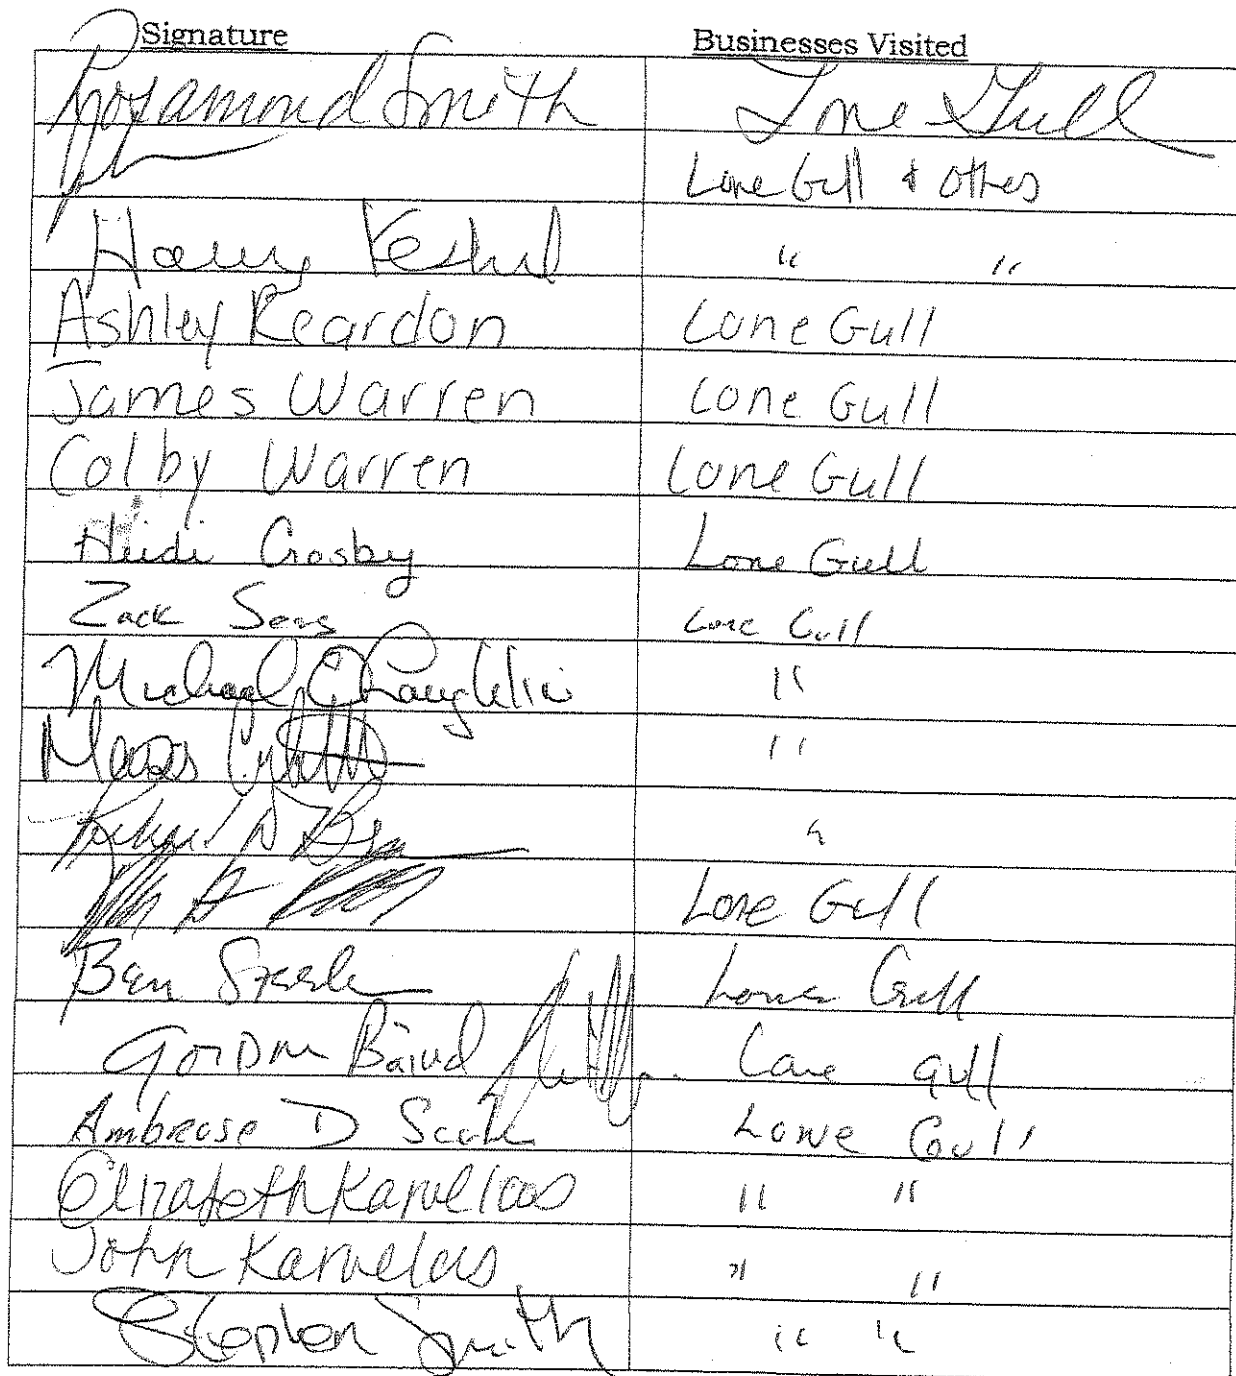 Signature Businesses Visited
Rosamond Smith Lone Gull
Lone Gull & others
" "
Ashley Reardon Lone Gull
James Warren Lone Gull
Colby Warren Lone Gull
Heidi Crosby Lone Gull
Zack Sears Lone Gull
Michael O'Laughlin "
"
"
Lone Gull
Ben Lone Gull
Gordon Baird Lone gull
Ambrose D Lone Gull
Elizabeth Karvelas " "
John Karvelas " "
Stephen Smith " "